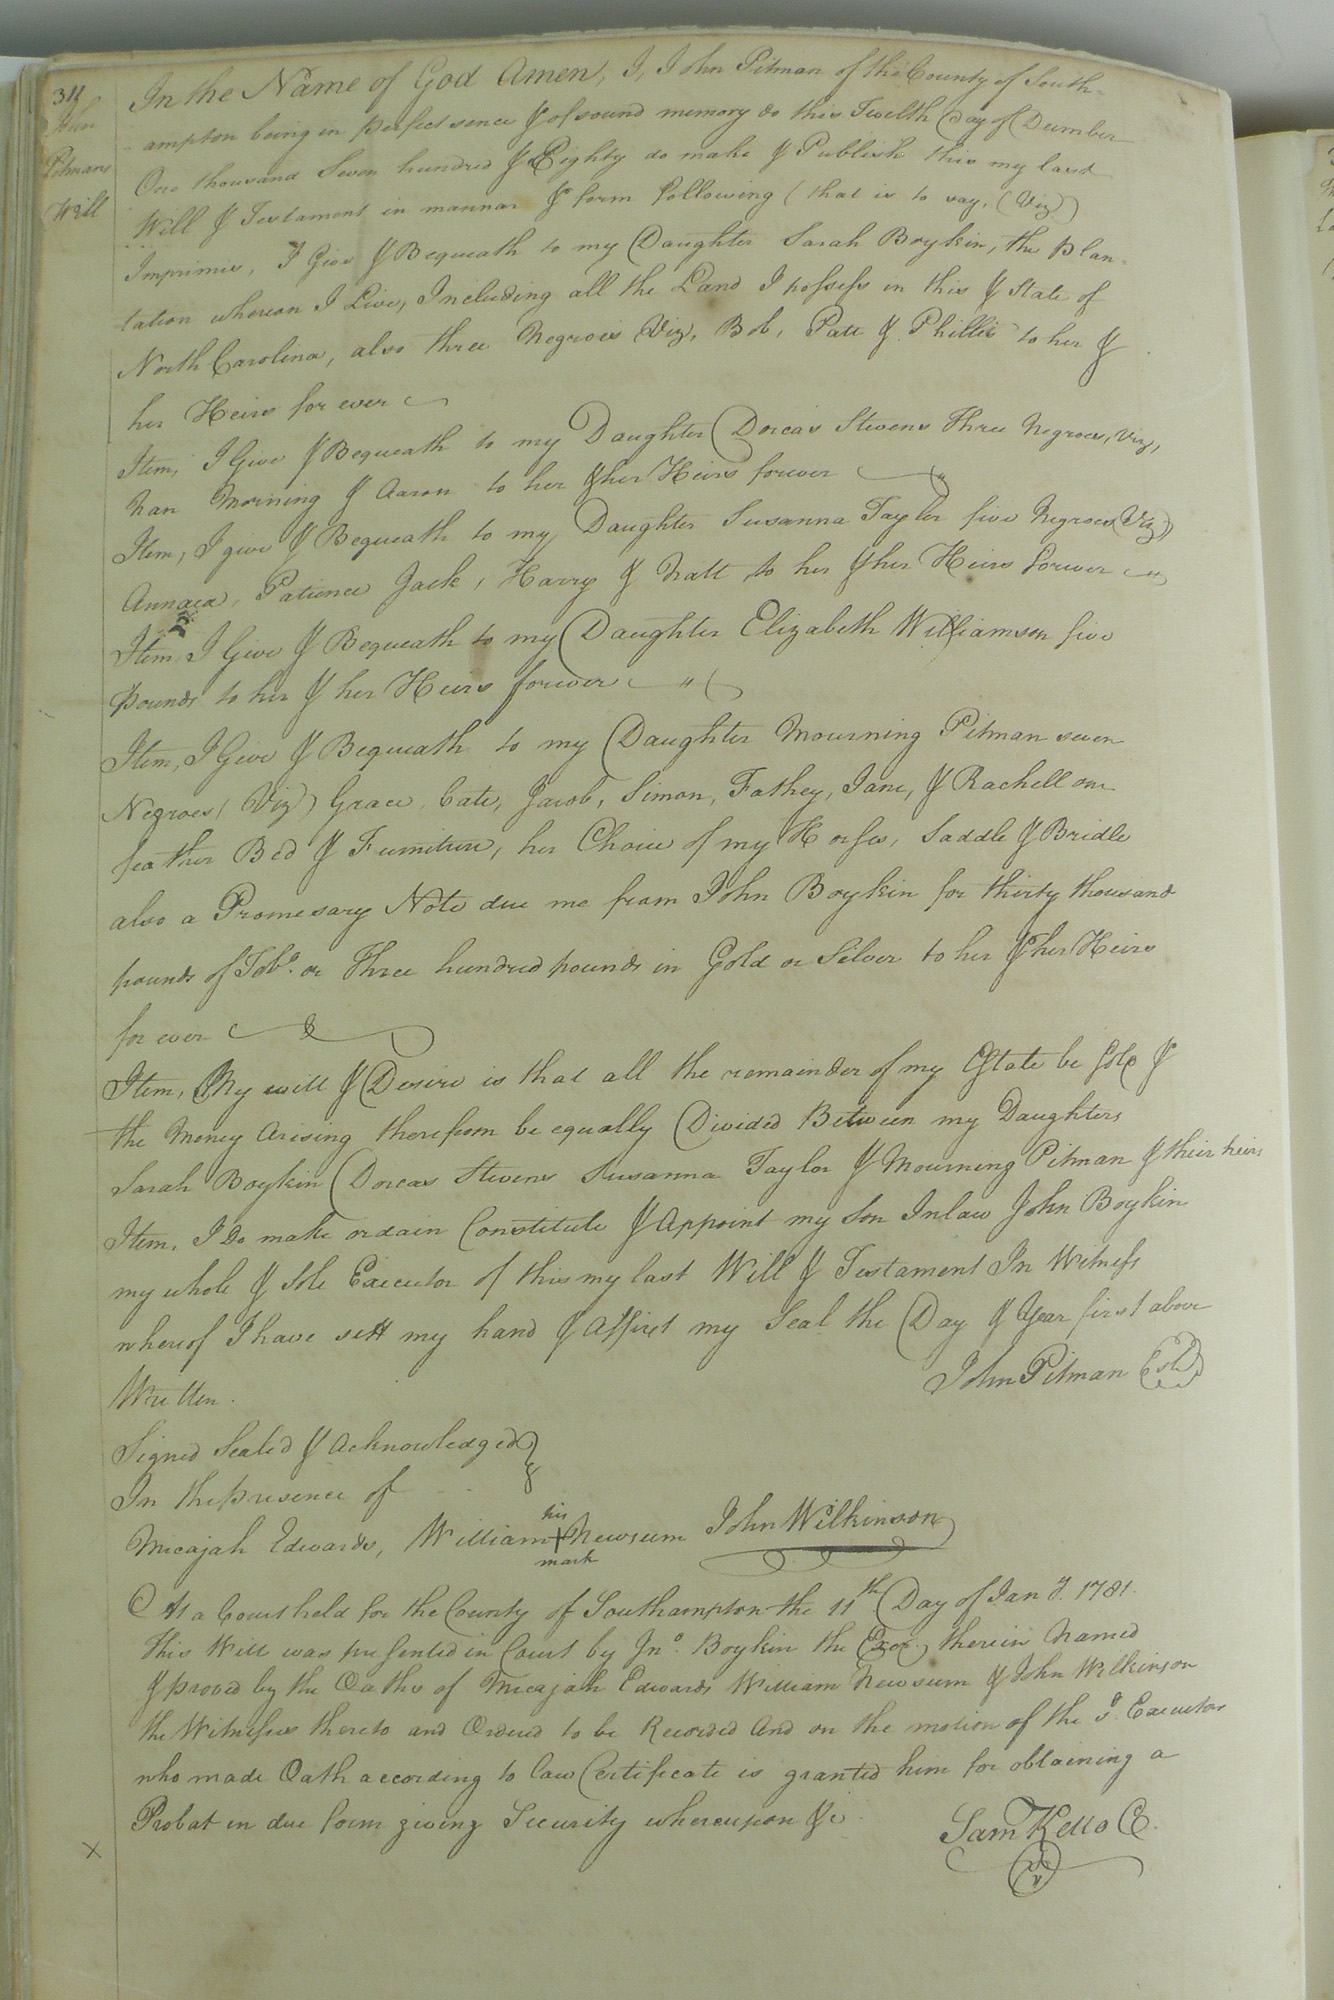 311
John
Pitmans
Will
In the Name of God Amen, I, John Pitman of the County of South-
ampton being in perfect sence & of sound memory do this Twelth Day of Decmber
One thousand Seven hundred & Eighty do make & Publish this my last
Will & Testament in mannar & form following (that is to say, (Viz)
Imprimis, I Give & Bequeath to my Daughter Sarah Boykin, the Plan-
tation whereon I Live, Including all the Land I possess in this & State of
North Carolina, also three Negroes Viz, Bob, Patt & Phillis to her &
her Heirs for ever
Item, I Give & Bequeath to my Daughter Dorcas Stevens Three Negroes, Viz,
Nan Morning & Aaron to her & her Heirs forever
Item, I give & Bequeath to my Daughter Susanna Taylor five Negroes (Viz)
Patience Jack, Harry & Natt to her & her Heirs forever
Item I Give & Bequeath to my Daughter Elizabeth Williamson five
pounds to her & her Heirs forever
Item, I Give & Bequeath to my Daughter Mourning Pitman seven
Negroes (Viz) Grace, Cate, Jacob, Simon, Fathey, Jane, & Rachell one
feather Bed & Furniture, her Choice of my Horses, Saddle & Bridle
also a Promesary Note due me from John Boykin for thirty thousand
pounds of Tobo. or Three hundred pounds in Gold or Silver to her & her Heirs
for ever
Item, My will & Desire is that all the remainder of my Estate be Sold &
the Money Arising therefrom be equally Divided Between my Daughters
Sarah Boykin Dorcas Stevens Susanna Taylor & Mourning Pitman & their heirs
Item, I Do make ordain Constitute & Appoint my Son Inlaw John Boykin
my whole & Sole Executor of this my last Will & Testament In Witness
whereof I have sett my hand & Affixt my Seal the Day & Year first above
Written.
John Pitman
Signed Sealed & Acknowledged
In the presence of
Micajah Edwards, William his + mark Newsum John Wilkinson
At a Court held for the County of Southampton the 11th Day of Jany. 1781.
This Will was presented in Court by Jno. Boykin the Exor. therein Named
& proved by the Oaths of Micajah Edwards William Newsum & John Wilkinson
the Witnesses thereto and Ordered to be Recorded And on the motion of the sd. Executor
who made Oath according to law Certificate is granted him for obtaining a
Probat in due form giving Security whereupon &c
Sam Kello C.
X